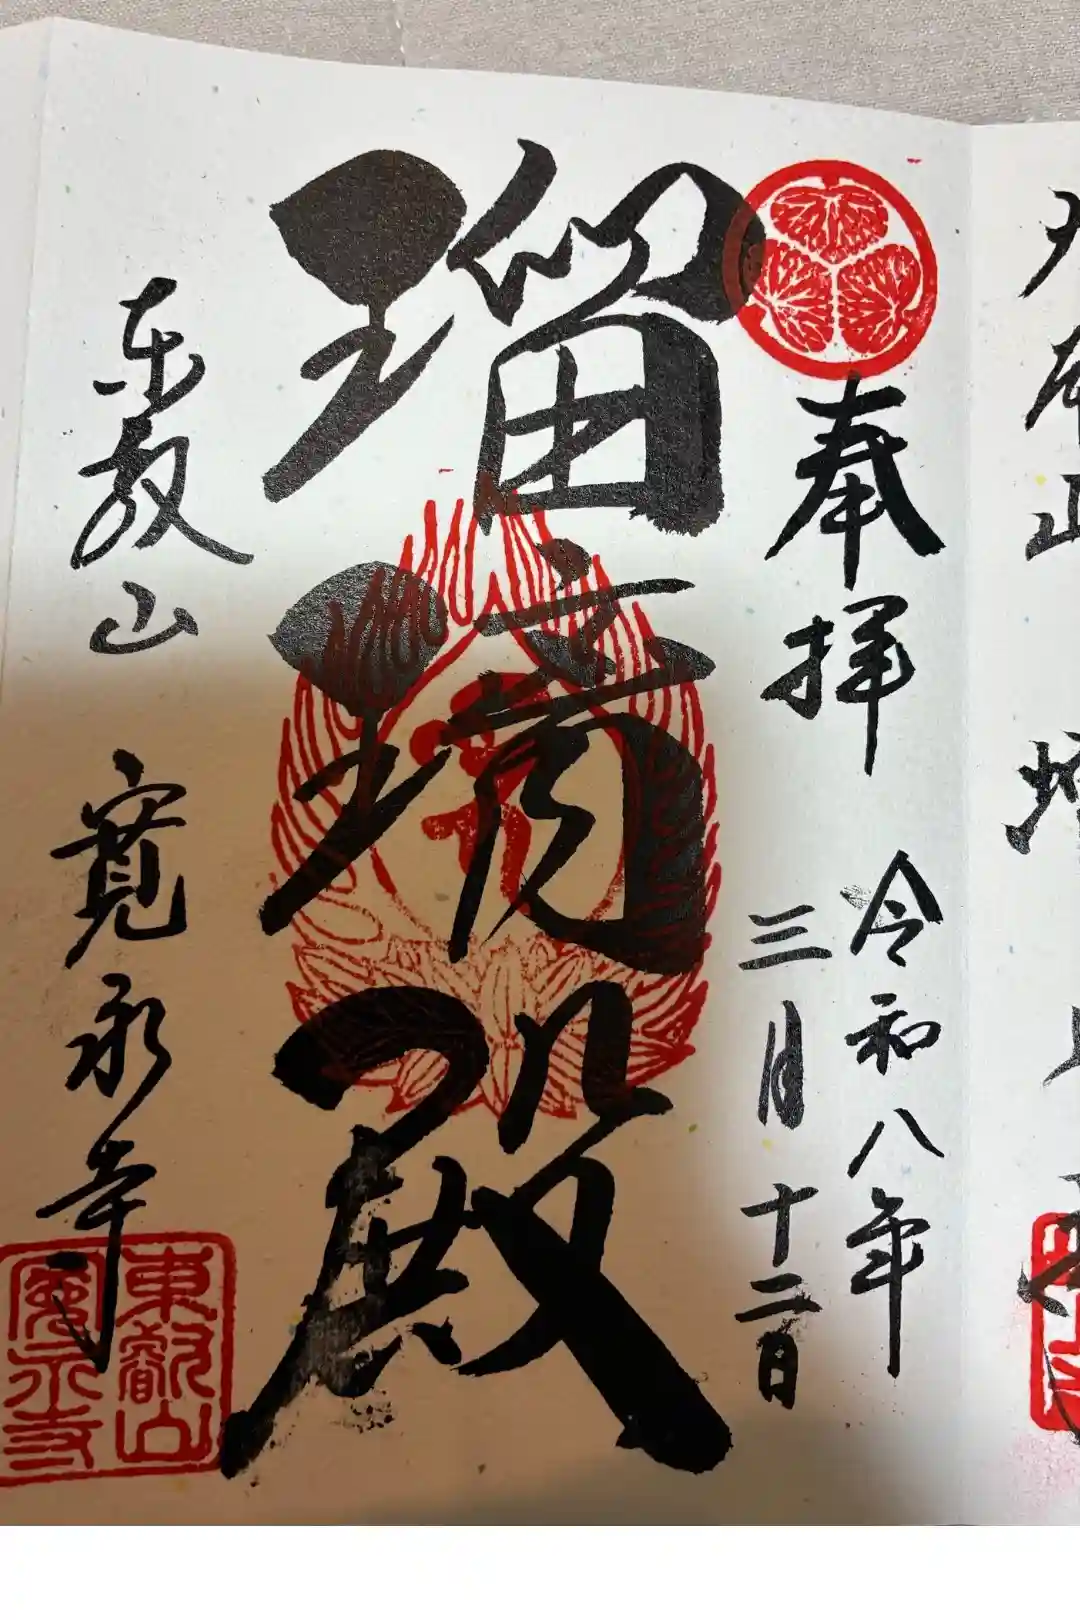 奉拝
令和八年
三月十二日
瑠璃殿
東叡山 寛永寺
東叡山
寛永寺